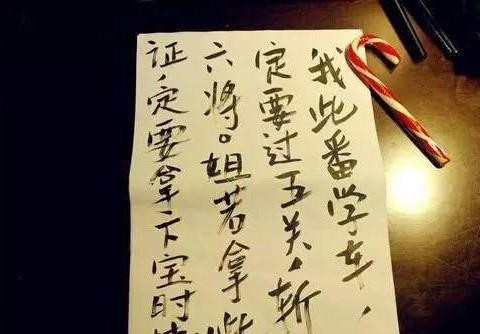 我此番学车，
定要过五关，斩
六将。姐若拿
证，定要拿下宝时